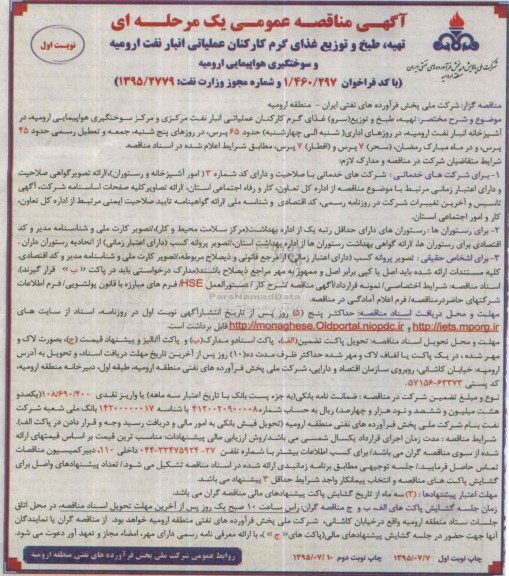 آگهی مناقصه عمومی یک مرحله ای
نوبت اول
تهیه، طبخ و توزیع غذای گرم کارکنان عملیاتی انبار نفت ارومیه
و سوختگیری هواپیمایی ارومیه
(با کد فراخوان ۱/۴۶۰/۲۹۷ و شماره مجوز وزارت نفت: ۱۳۹۵/۲۷۷۹)
شرکت ملی پخش فرآورده های نفتی ایران
منطقه ارومیه
مناقصه گزار: شرکت ملی پخش فرآورده های نفتی ایران - منطقه ارومیه
موضوع و شرح مختصر: تهیه، طبخ و توزیع(سرو) غذای گرم کارکنان عملیاتی انبار نفت مرکزی و مرکز سوختگیری هواپیمایی ارومیه، در
آشپزخانه انبار نفت ارومیه، در روزهای اداری( شنبه الی چهارشنبه) حدود ۶۵ پرس، در روزهای پنج شنبه، جمعه و تعطیل رسمی حدود ۴۵
پرس، و در ماه مبارک رمضان، (سحر) ۷ پرس و (افطار) ۷ پرس، مطابق شرایط اعلام شده در اسناد مناقصه.
شرایط متقاضیان شرکت در مناقصه و مدارک لازم:
۱- برای شرکت های خدماتی : شرکت های خدماتی با صلاحیت و دارای کد شماره ۳ ( امور آشپزخانه و رستوران)،ارائه تصویر گواهی صلاحیت
و دارای اعتبار زمانی مرتبط با موضوع مناقصه از اداره کل تعاون، کار و رفاه اجتماعی استان، ارائه تصاویر کلیه صفحات اساسنامه شرکت، آگهی
تاسیس و آخرین تغییرات شرکت در روزنامه رسمی، کد اقتصادی و شناسه ملی ارائه گواهینامه تایید صلاحیت ایمنی مرتبط از اداره کل تعاون،
کار و امور اجتماعی استان.
۲- برای رستوران ها : رستوران های دارای حداقل رتبه یک از اداره بهداشت(مرکز سلامت محیط و کار)،تصویر کارت ملی و شناسنامه مدیر و کد
اقتصادی برای رستوران ها، ارائه گواهی بهداشت رستوران ها از اداره بهداشت استان،تصویر پروانه کسب (دارای اعتبار زمانی) از اتحادیه رستوران داران .
۳- برای اشخاص حقیقی : تصویر پروانه کسب (دارای اعتبار زمانی) از مرجع قانونی و ذیصلاح مربوطه،تصویر کارت ملی و شناسنامه مدیر و کد اقتصادی.
کلیه مستندات ارائه شده باید اصل یا کپی برابر اصل و ممهور به مهر مراجع ذیصلاح باشند(مدارک درخواستی باید در پاکت « ب » قرار گیرند).
اسناد مناقصه: شرایط اختصاصی/ نمونه قرارداد/آگهی مناقصه /شرح کار / دستورالعمل HSE/ فرم های مبارزه با قانون پولشویی/ فرم اطلاعات
شرکتهای حاضر درمناقصه/ فرم اعلام آمادگی در مناقصه.
مهلت و محل دریافت اسناد مناقصه: حداکثر پنج (۵) روز پس از تاریخ انتشارآگهی نوبت اول در روزنامه، اسناد از سایت های
http://iets.mporg.ir و http://monaghese.Oldportal.niopdc.ir قابل برداشت است
مهلت و محل تحویل اسناد مناقصه: تحویل پاکت تضمین(الف)، پاکت اسنادو مدارک(ب) و پاکت آنالیز و پیشنهاد قیمت (ج)، بصورت لاک و
مهر شده ، در یک پاکت یا لفاف لاک و مهر شده حداکثر ظرف مدت ده(۱۰) روز پس از آخرین تاریخ مهلت دریافت اسناد، و تحویل به آدرس
ارومیه، خیابان کاشانی، روبروی سازمان اقتصاد و دارایی، شرکت ملی پخش فرآورده های نفتی منطقه ارومیه، طبقه اول، دبیرخانه منطقه ارومیه،
کد پستی ۶۳۳۷۳-۵۷۱۵۶.
نوع و مبلغ تضمین شرکت در مناقصه : ضمانت نامه بانکی(به جزء پست بانک با تاریخ اعتبار سه ماهه) یا واریز نقدی ۱۰۸/۶۹۰/۴۰۰(یکصدو
هشت میلیون و ششصد و نود هزار و چهارصد) ریال به حساب شماره ۴۱۲۰۰۲۰۹۰۰۰۰۸ با شناسه ۱۴۲۰۰۰۰۰۰۱۷ بانک ملی شعبه شرکت
نفت بنام شرکت ملی پخش فرآورده های نفتی منطقه ارومیه (تحویل فیش بانکی به امور مالی و دریافت رسید وجه و قرار دادن در پاکت الف).
شرایط مناقصه : مدت زمان اجرای قرارداد یکسال شمسی می باشد/روش ارزیابی مالی پیشنهادات: مناسب ترین قیمت بر اساس قیمتهای ارائه
شده از سوی مناقصه گران می باشد/ برای کسب اطلاعات بیشتر با شماره تلفن ۲۷- ۳۳۴۷۵۹۲۴-۰۴۴ داخلی ۱۱۰، دبیر کمیسیون مناقصات
تماس حاصل فرمایید./ جلسه توجیهی مطابق برنامه زمانبندی ارائه شده در اسناد مناقصه تشکیل می شود./ تعداد پیشنهادهای واصل برای
گشایش پاکت های مناقصه و انتخاب پیمانکار واجد شرایط حداقل ۳ پیشنهاد می باشد.
مهلت اعتبار پیشنهادها : (۳) سه ماه از تاریخ گشایش پاکت پیشنهادهای مالی مناقصه گران می باشد.
زمان جلسه گشایش پاکت های الف، ب و ج مناقصه گران راس ساعت ۱۰ صبح یک روز پس از آخرین مهلت تحویل اسناد مناقصه، در محل اتاق
جلسات ستاد منطقه ارومیه واقع درخیابان کاشانی، شرکت ملی پخش فرآورده های نفتی منطقه ارومیه خواهد بود. از مناقصه گران یا نمایندگان
آنها جهت حضور در جلسه گشایش پیشنهادهای مالی(پاکت های« ج »)، با ارائه معرفی نامه رسمی دارای مهر، امضاء مجاز و تعهد آور دعوت می شود.
چاپ نوبت اول ۱۳۹۵/۰۷/۷ چاپ نوبت دوم ۱۳۹۵/۰۷/۱۰
روابط عمومی شرکت ملی پخش فرآورده های نفتی منطقه ارومیه
ParsNamadData